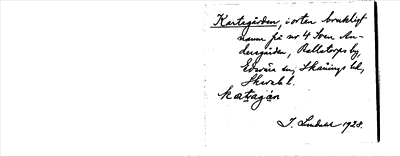 Kartegården, i orten brukligt
namn på nr 4 Sven An-
dersgården, Balltorps by,
Edsvära sn, Skånings hd,
Skarab. l.
katragán
J. 1928.